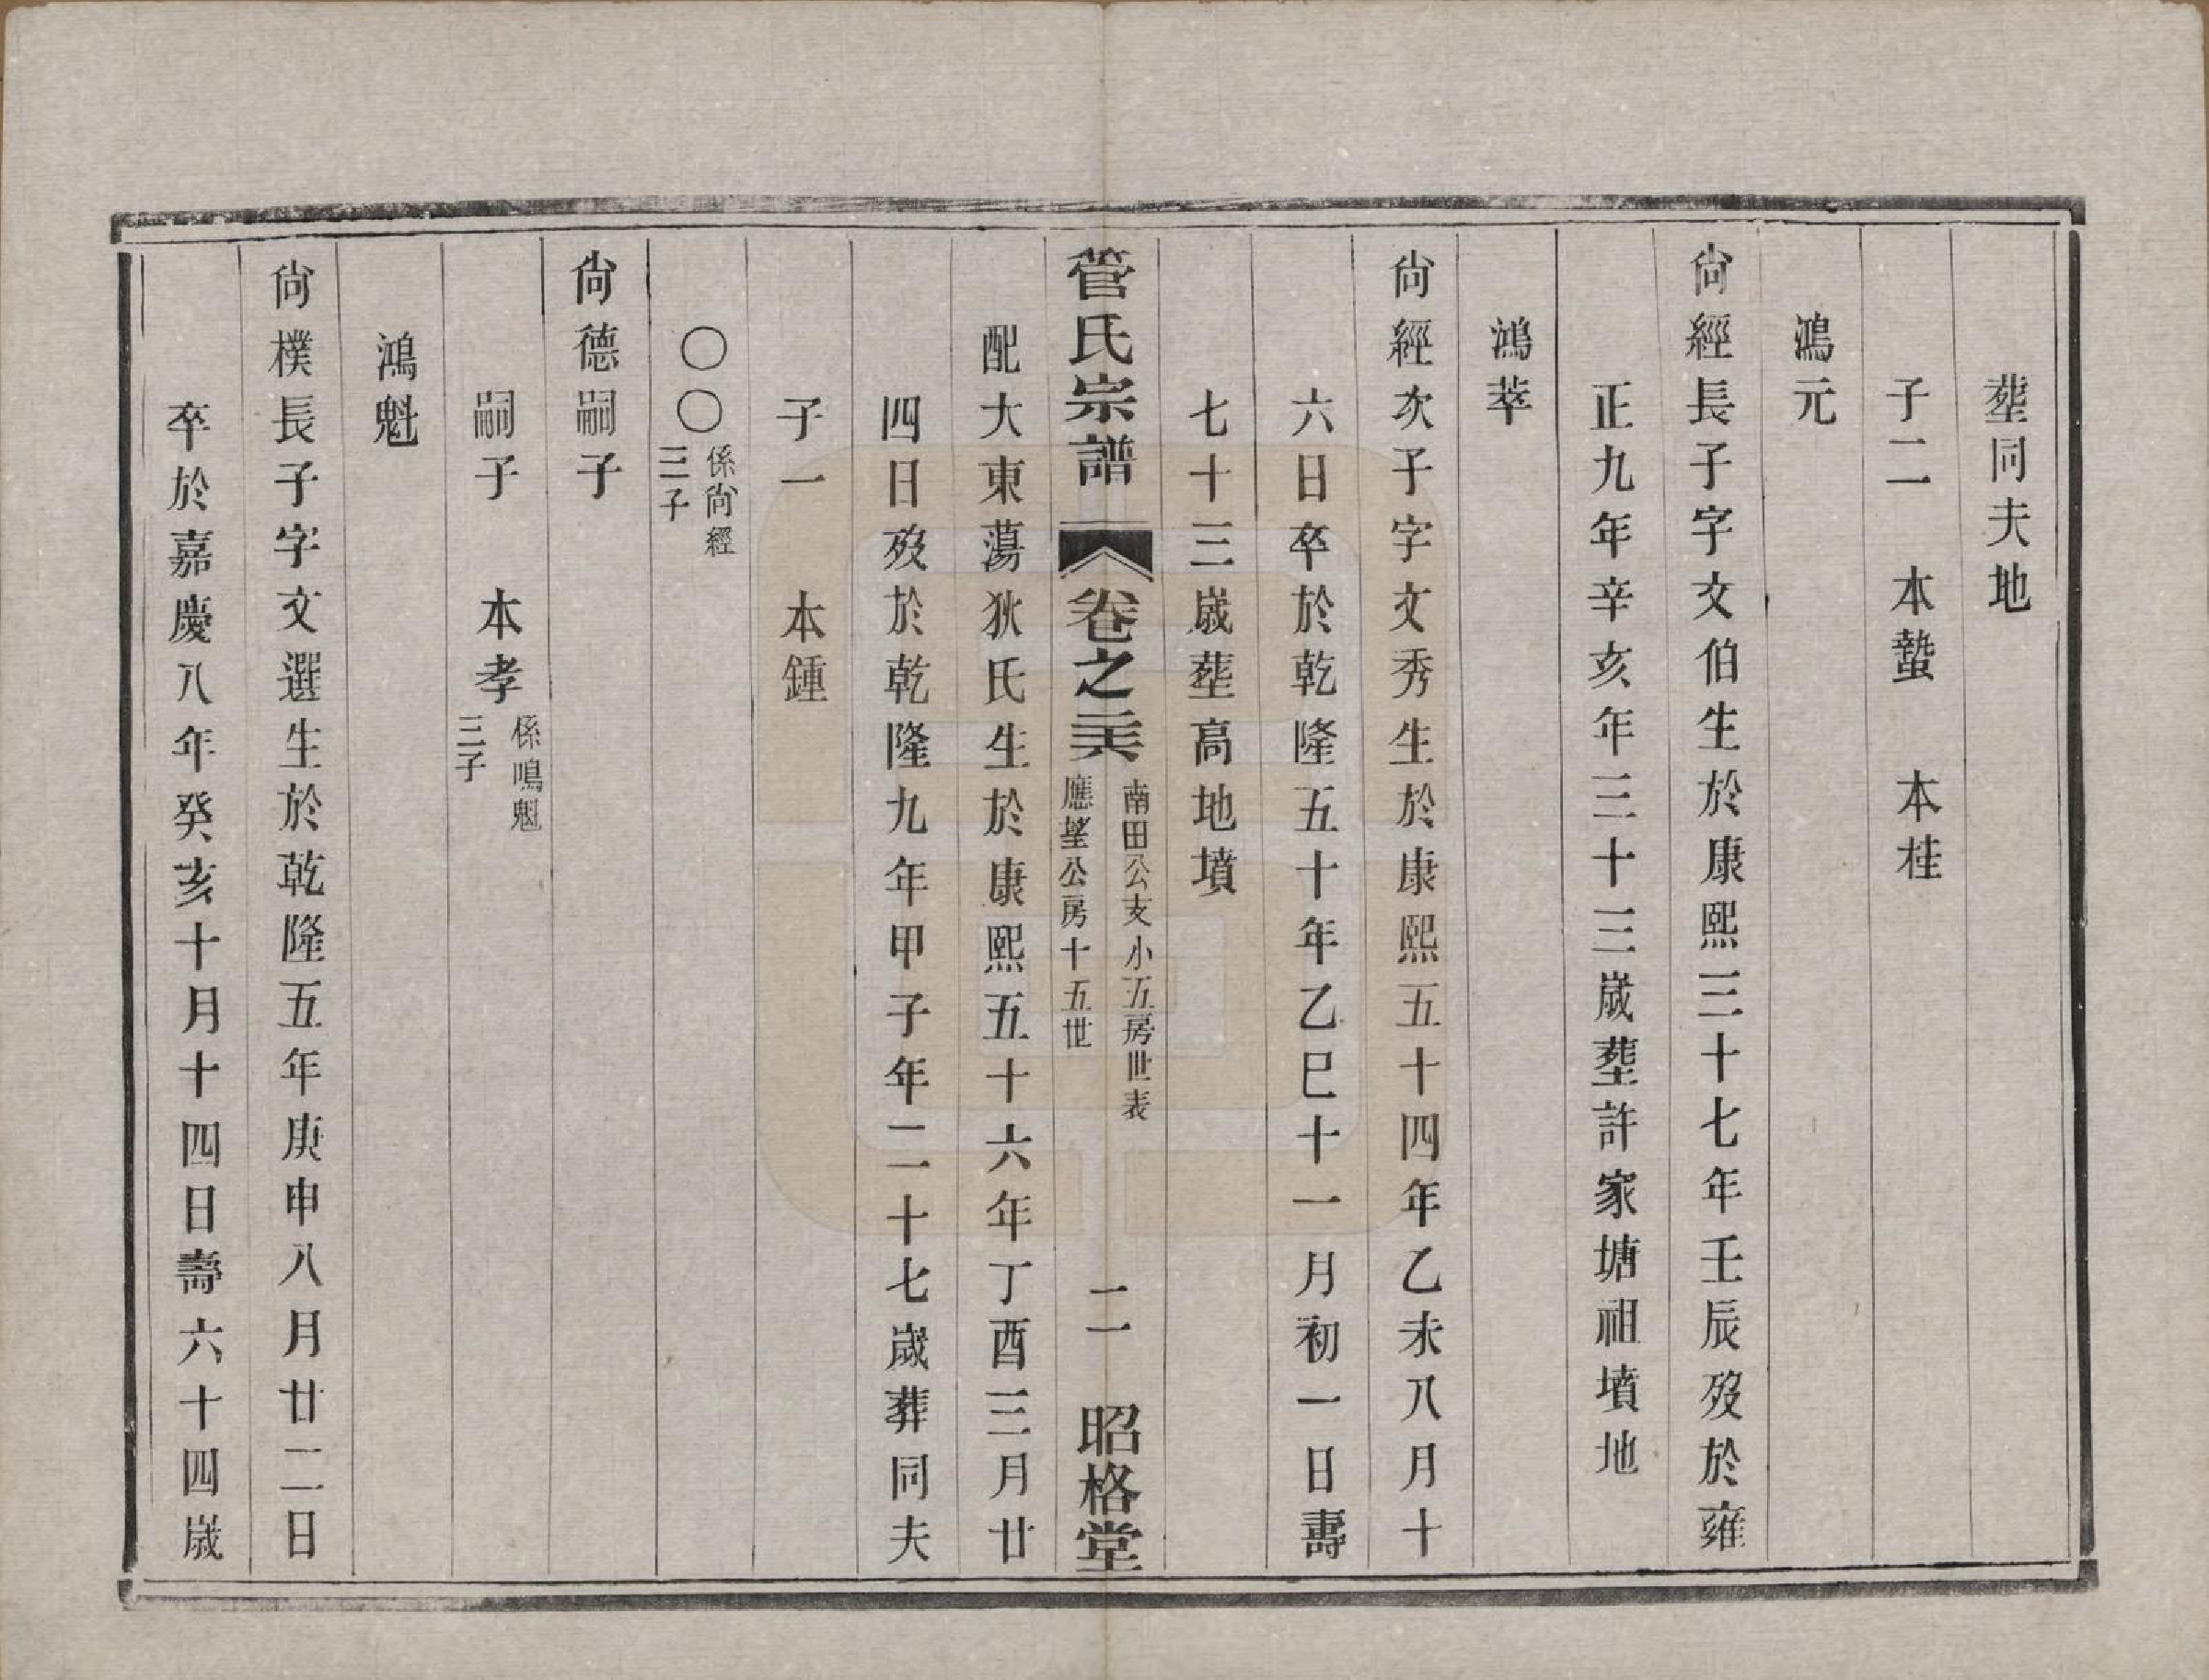 塟同夫地
子二　本蟄　本桂
鴻元
尙經長子字文伯生於康熙三十七年壬辰歿於雍
正九年辛亥年三十三歲塟許家塘祖墳地
鴻萃
尙經次子字文秀生於康熙五十四年乙未八月十
六日卒於乾隆五十年乙巳十一月初一日壽
七十三歲塟高地墳
管氏宗譜　卷之二六　南田公支小五房世表
應堃公房十五世　二　昭格堂
配大東蕩狄氏生於康熙五十六年丁酉三月廿
四日歿於乾隆九年甲子年二十七歲葬同夫
子一　本鍾
〇〇係尙經
三子
尙德嗣子
嗣子　本孝係鳴魁
三子
鴻魁
尙樸長子字文選生於乾隆五年庚申八月廿二日
卒於嘉慶八年癸亥十月十四日壽六十四歲